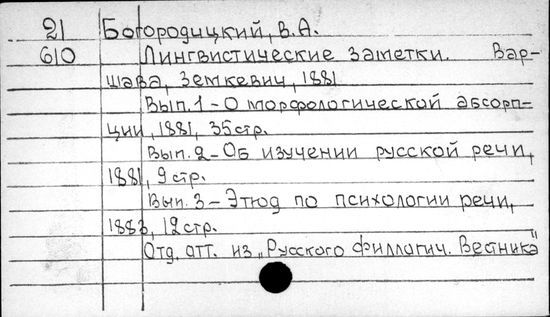 21 Богородицкий, В.А.
610 Лингвистические заметки. Вар-
шава, Земкевич, 1881
Вып.1-О морфологической абсорп-
ции, 1881, 35стр.
Вып.2-Об изучении русской речи,
1881, 9стр.
Вып.3-Этюд по психологии речи,
1883, 12стр.
Отд. отт. из „Русского филлогич. Вестника"